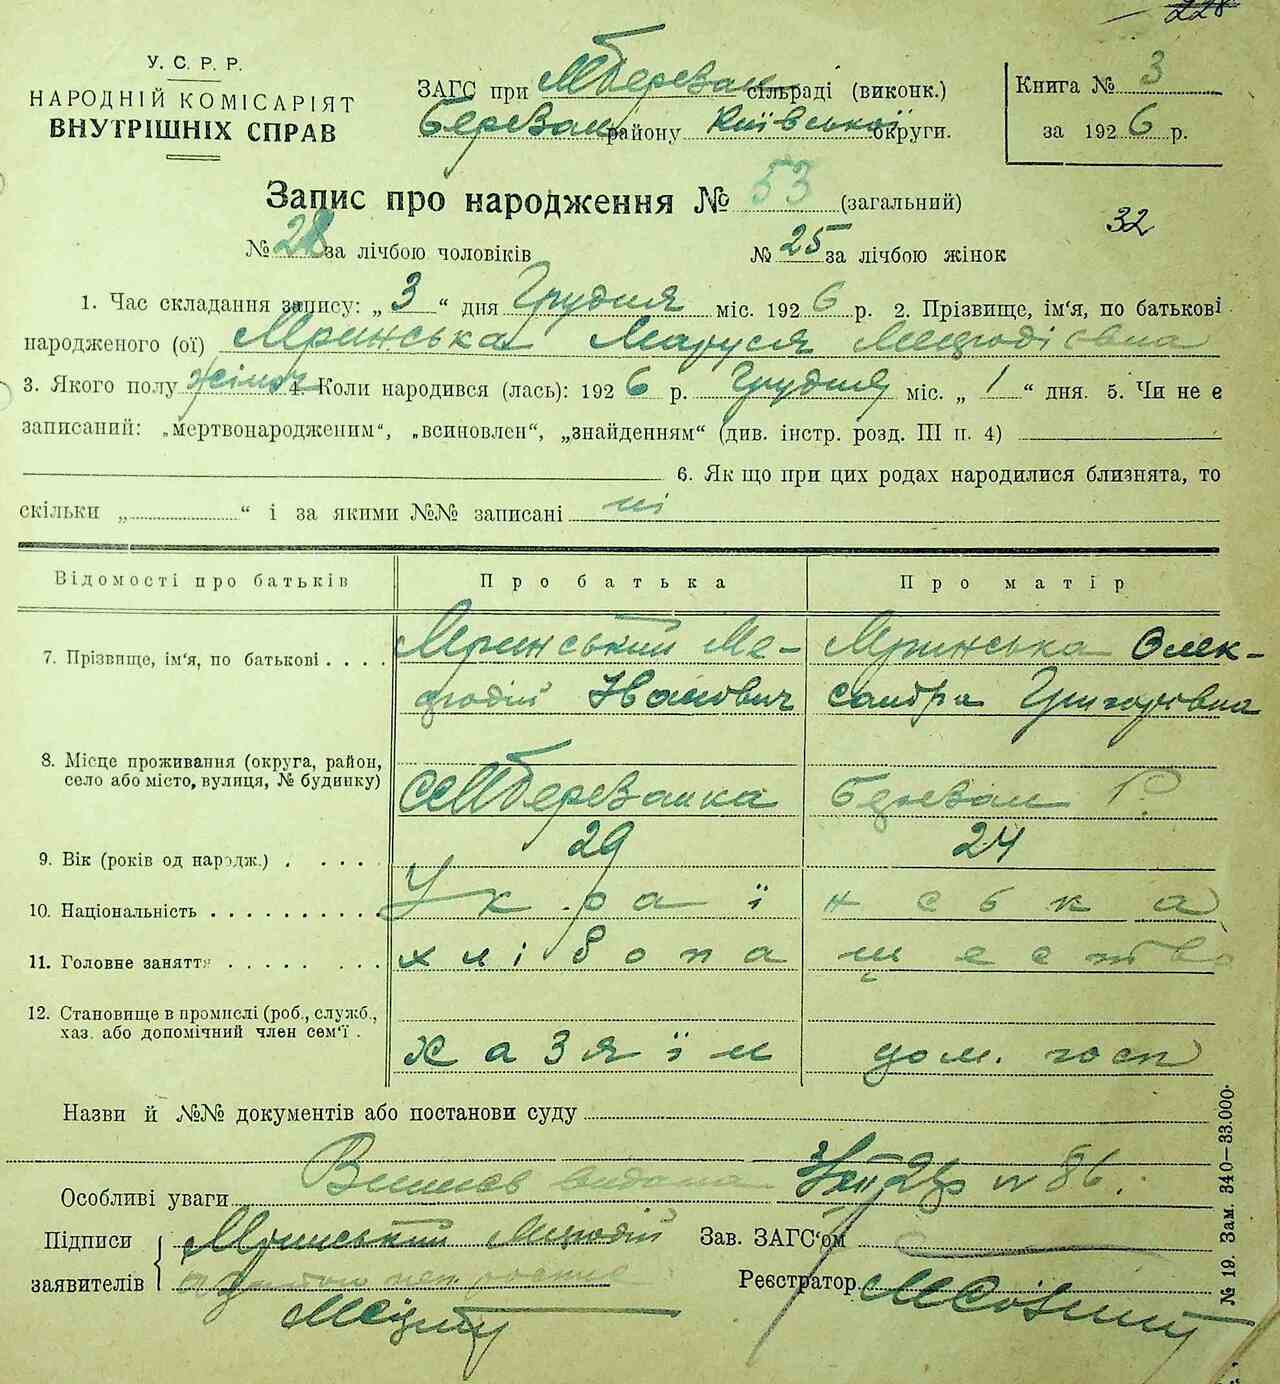 228
У. С. Р. Р.
НАРОДНІЙ КОМІСАРІЯТ
ВНУТРІШНІХ СПРАВ
ЗАГС при МБерезан сільраді (виконк.)
Березан району Київської округи.
Книга № 3
за 1926 р.
Запис про народження № 53 (загальний)
32
№ 28 за лічбою чоловіків № 25 за лічбою жінок
1. Час складання запису: „ 3 “ дня Грудня міс. 1926 р. 2. Прізвище, ім‘я, по батькові
народженого (ої) Мринська Маруся Мефодіївна
3. Якого полу жіноч 4. Коли народився (лась): 1926 р. Грудня міс. „ 1 “ дня. 5. Чи не є
записаний: „мертвонародженим“, „всиновлен“, „знайденням“ (див. інстр. розд. III п. 4)
6. Як що при цих родах народилися близнята, то
скільки „ “ і за якими №№ записані ні
Відомості про батьків Про батька Про матір
7. Прізвище, ім‘я, по батькові . . . . Мринський Ме- Мринська Олек-
фодій Іванович сандра Григорівна
8. Місце проживання (округа, район,
село або місто, вулиця, № будинку) МБерезанка Березан Р.
9. Вік (років од народж.) . . . . . 29 24
10. Національність . . . . . . . . . . Украї нська
11. Головне заняття . . . . . . . . хлібопа шество
12. Становище в промислі (роб., служб.,
хаз. або допомічний член сем‘ї . хазяїн дом. госп
Назви й №№ документів або постанови суду
Особливі уваги Виписъ видана № 86.
Підписи Мринський Мефодій Зав. ЗАГС‘ом
заявителів Реєстратор
№ 19. Зам. 340–33.000.